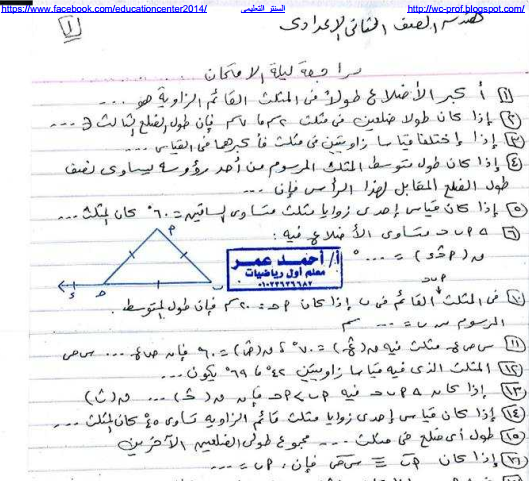 https://www.facebook.com/educationcenter2014/ السنتر التعليمى http://wc-prof.blogspot.com/
هندسة الصف الثانى الإعدادى
١
مراجعة ليلة الامتحان
١ أكبر الأضلاع طولاً فى المثلث القائم الزاوية هو ...
٢ إذا كان طولا ضلعين فى مثلث ٢سم ، ٧سم فإن طول الضلع الثالث ∋ ...
٣ إذا اختلفا قياسا زاويتين فى مثلث فأكبرهما فى القياس ...
٤ إذا كان طول متوسط المثلث المرسوم من أحد رؤوسه يساوى نصف
طول الضلع المقابل لهذا الرأس فإن ...
٥ إذا كان قياس إحدى زوايا مثلث متساوى الساقين = ٦٠° كان المثلث ...
٦ △ ٢ب حـ متساوى الأضلاع فيه :
أ/ أحمد عمر
معلم أول رياضيات
٠١٠٢٢٩٢٦٩٨٢
٧ فى المثلث ٢ب حـ القائم فى ب إذا كان ٢حـ = ٢٠سم فإن طول المتوسط
المرسوم من ب = ... سم
١١ س ص ع مثلث فيه ... = ٧٠° ، ... = ٦٠° فإن ص ع ... س ص
١٢ المثلث الذى فيه قياسا زاويتين ٤٢° ، ٦٩° يكون ...
١٣ إذا كان △ ٢ب حـ فيه ٢ب > ٢حـ فإن
١٤ إذا كان قياس إحدى زوايا مثلث قائم الزاوية تساوى ٤٥° كان المثلث ...
١٥ طول أى ضلع فى مثلث ... مجموع طولى الضلعين الآخرين
إذا كان ... ≡ س ص فإن : ٢ب = ...